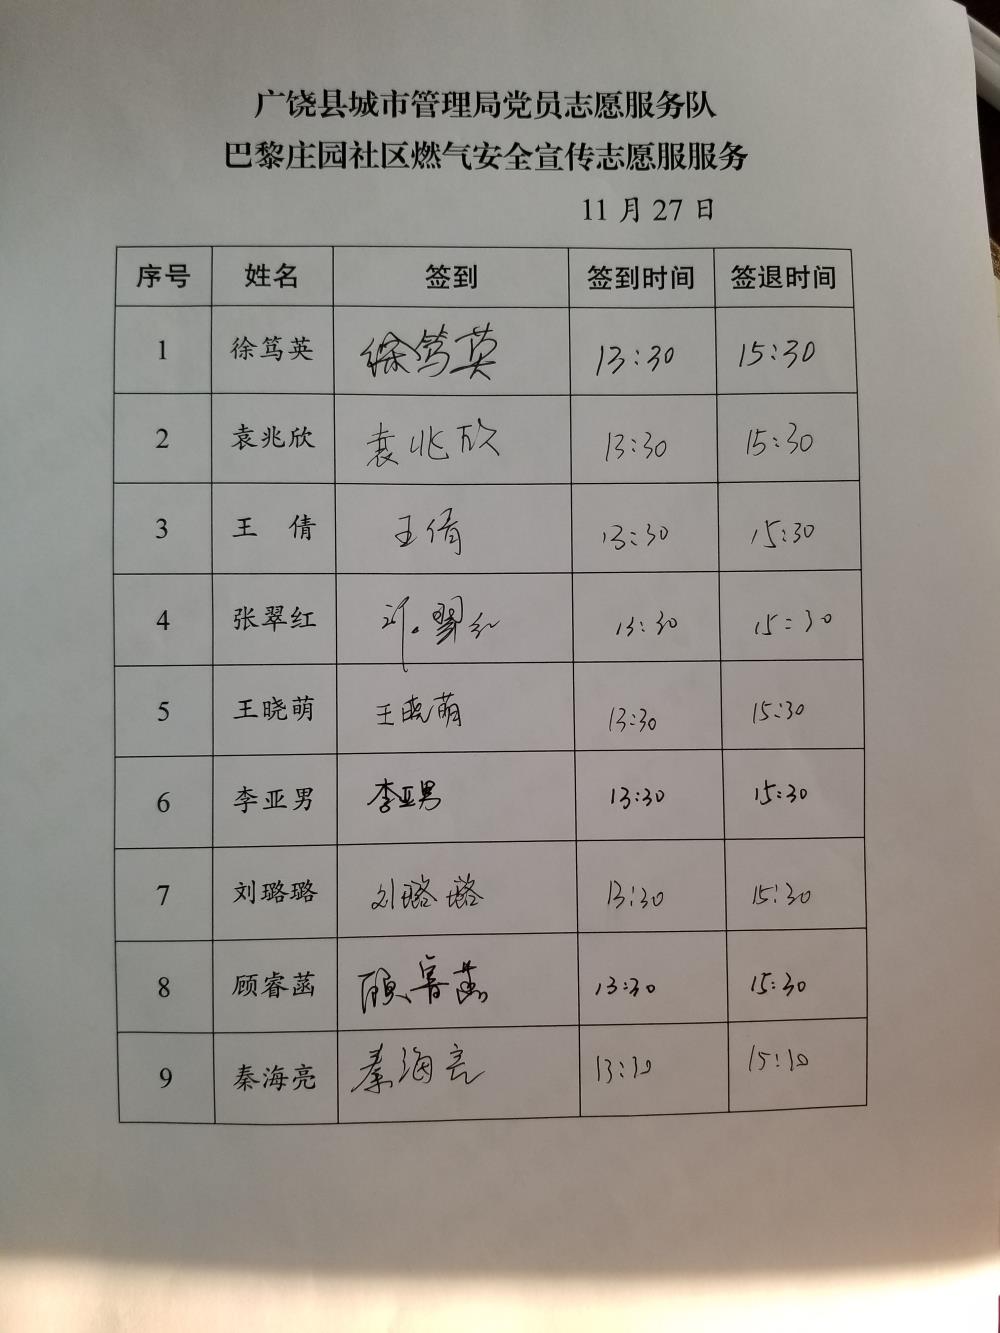 广饶县城市管理局党员志愿服务队
巴黎庄园社区燃气安全宣传志愿服服务
11 月 27 日
序号 姓名 签到 签到时间 签退时间
1 徐笃英 徐笃英 13:30 15:30
2 袁兆欣 袁兆欣 13:30 15:30
3 王 倩 王倩 13:30 15:30
4 张翠红 张翠红 13:30 15:30
5 王晓萌 王晓萌 13:30 15:30
6 李亚男 李亚男 13:30 15:30
7 刘璐璐 刘璐璐 13:30 15:30
8 顾睿菡 顾睿菡 13:30 15:30
9 秦海亮 秦海亮 13:30 15:30